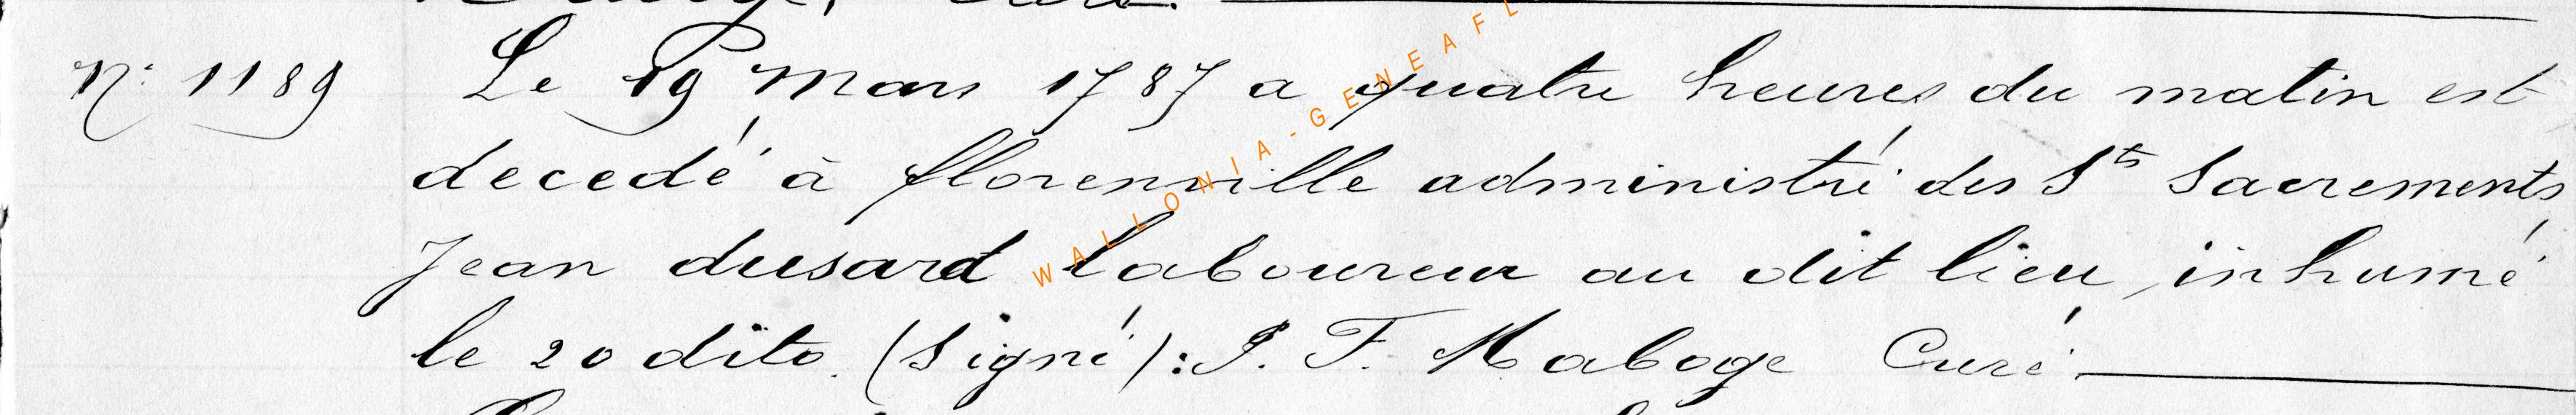 N° 1189 Le 19 Mars 1787 a quatre heures du matin est
decedé à florenville administré des Sts Sacrements
Jean dusard laboureur au dit lieu, inhumé
le 20 dito. (signé): J. F. Maboge Curé.
WALLONIA-GENEAFL